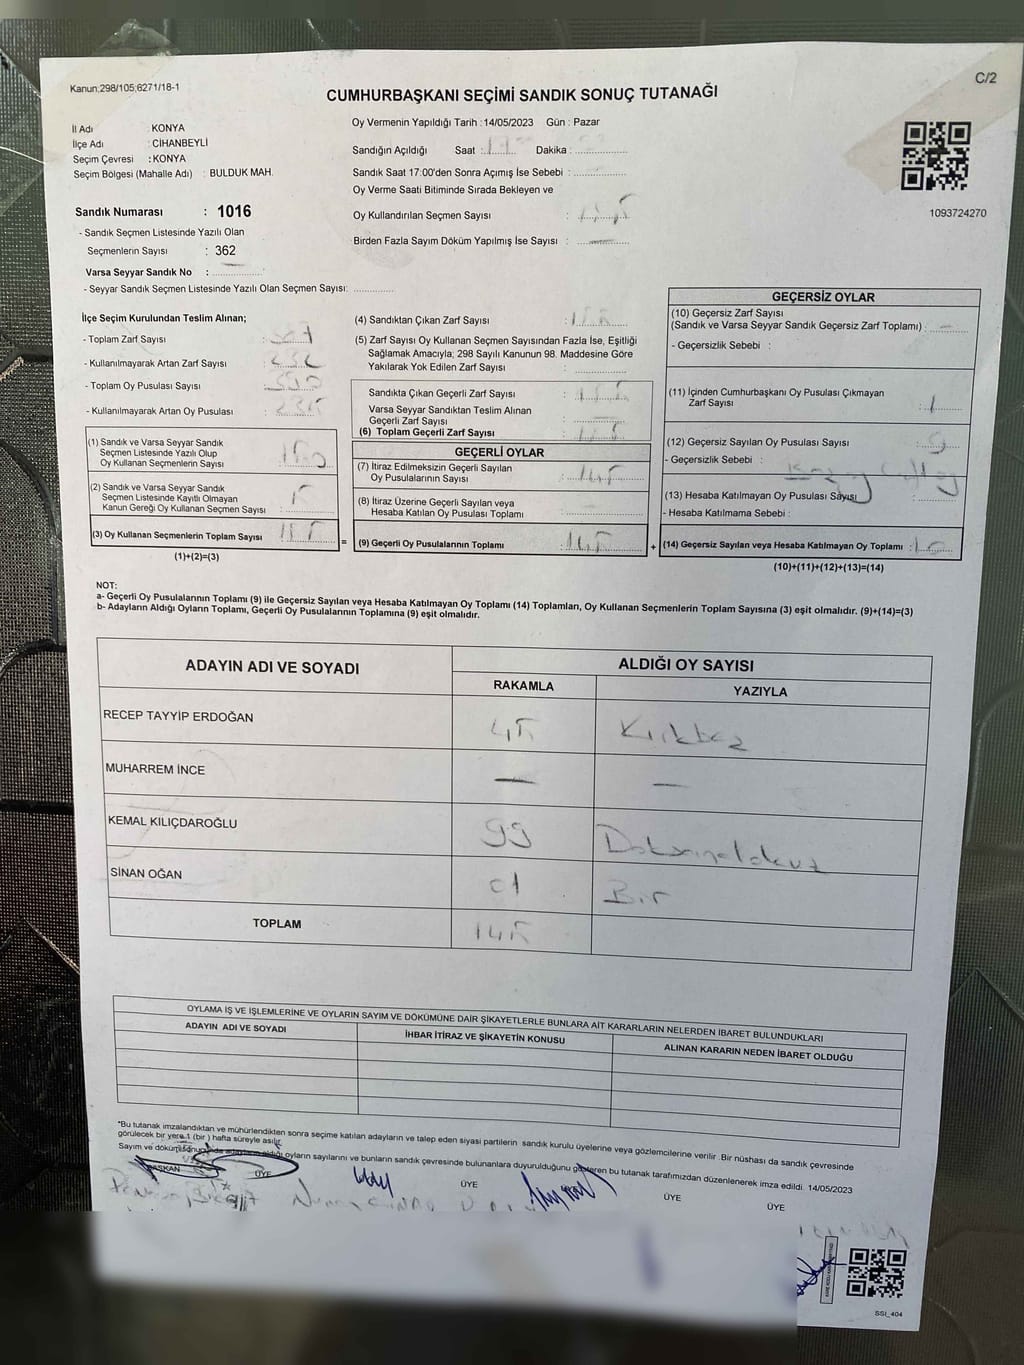 Kanun;298/105;6271/18-1
C/2
CUMHURBAŞKANI SEÇİMİ SANDIK SONUÇ TUTANAĞI
İl Adı : KONYA
İlçe Adı : CİHANBEYLİ
Seçim Çevresi : KONYA
Seçim Bölgesi (Mahalle Adı) : BULDUK MAH.
Sandık Numarası : 1016
- Sandık Seçmen Listesinde Yazılı Olan
Seçmenlerin Sayısı : 362
Varsa Seyyar Sandık No :
- Seyyar Sandık Seçmen Listesinde Yazılı Olan Seçmen Sayısı:
Oy Vermenin Yapıldığı Tarih : 14/05/2023 Gün : Pazar
Sandığın Açıldığı Saat : Dakika :
Sandık Saat 17:00'den Sonra Açımış İse Sebebi :
Oy Verme Saati Bitiminde Sırada Bekleyen ve
Oy Kullandırılan Seçmen Sayısı :
Birden Fazla Sayım Döküm Yapılmış İse Sayısı : —
1093724270
İlçe Seçim Kurulundan Teslim Alınan;
- Toplam Zarf Sayısı :
- Kullanılmayarak Artan Zarf Sayısı :
- Toplam Oy Pusulası Sayısı :
- Kullanılmayarak Artan Oy Pusulası : 235
(1) Sandık ve Varsa Seyyar Sandık
Seçmen Listesinde Yazılı Olup
Oy Kullanan Seçmenlerin Sayısı : 150
(2) Sandık ve Varsa Seyyar Sandık
Seçmen Listesinde Kayıtlı Olmayan
Kanun Gereği Oy Kullanan Seçmen Sayısı : 5
(3) Oy Kullanan Seçmenlerin Toplam Sayısı : 155
(1)+(2)=(3)
(4) Sandıktan Çıkan Zarf Sayısı : 155
(5) Zarf Sayısı Oy Kullanan Seçmen Sayısından Fazla İse, Eşitliği
Sağlamak Amacıyla; 298 Sayılı Kanunun 98. Maddesine Göre
Yakılarak Yok Edilen Zarf Sayısı :
Sandıkta Çıkan Geçerli Zarf Sayısı : 155
Varsa Seyyar Sandıktan Teslim Alınan
Geçerli Zarf Sayısı : —
(6) Toplam Geçerli Zarf Sayısı : 155
GEÇERLİ OYLAR
(7) İtiraz Edilmeksizin Geçerli Sayılan
Oy Pusulalarının Sayısı : 145
(8) İtiraz Üzerine Geçerli Sayılan veya
Hesaba Katılan Oy Pusulası Toplamı :
= (9) Geçerli Oy Pusulalarının Toplamı : 145
GEÇERSİZ OYLAR
(10) Geçersiz Zarf Sayısı
(Sandık ve Varsa Seyyar Sandık Geçersiz Zarf Toplamı) : —
- Geçersizlik Sebebi :
(11) İçinden Cumhurbaşkanı Oy Pusulası Çıkmayan
Zarf Sayısı : 1
(12) Geçersiz Sayılan Oy Pusulası Sayısı : 9
- Geçersizlik Sebebi :
(13) Hesaba Katılmayan Oy Pusulası Sayısı :
- Hesaba Katılmama Sebebi :
+ (14) Geçersiz Sayılan veya Hesaba Katılmayan Oy Toplamı : 10
(10)+(11)+(12)+(13)=(14)
NOT:
a- Geçerli Oy Pusulalarının Toplamı (9) ile Geçersiz Sayılan veya Hesaba Katılmayan Oy Toplamı (14) Toplamları, Oy Kullanan Seçmenlerin Toplam Sayısına (3) eşit olmalıdır. (9)+(14)=(3)
b- Adayların Aldığı Oyların Toplamı, Geçerli Oy Pusulalarının Toplamına (9) eşit olmalıdır.
ADAYIN ADI VE SOYADI
ALDIĞI OY SAYISI
RAKAMLA YAZIYLA
RECEP TAYYİP ERDOĞAN 45 Kırkbeş
MUHARREM İNCE — —
KEMAL KILIÇDAROĞLU 99 Doksandokuz
SİNAN OĞAN 01 Bir
TOPLAM 145
OYLAMA İŞ VE İŞLEMLERİNE VE OYLARIN SAYIM VE DÖKÜMÜNE DAİR ŞİKAYETLERLE BUNLARA AİT KARARLARIN NELERDEN İBARET BULUNDUKLARI
ADAYIN ADI VE SOYADI
İHBAR İTİRAZ VE ŞİKAYETİN KONUSU
ALINAN KARARIN NEDEN İBARET OLDUĞU
*Bu tutanak imzalandıktan ve mühürlendikten sonra seçime katılan adayların ve talep eden siyasi partilerin sandık kurulu üyelerine veya gözlemcilerine verilir .Bir nüshası da sandık çevresinde
görülecek bir yere 1 (bir ) hafta süreyle asılır.
Sayım ve döküm oyların sayılarını ve bunların sandık çevresinde bulunanlara duyurulduğunu gösteren bu tutanak tarafımızdan düzenlenerek imza edildi. 14/05/2023
BAŞKAN ÜYE ÜYE ÜYE ÜYE
SSİ_404